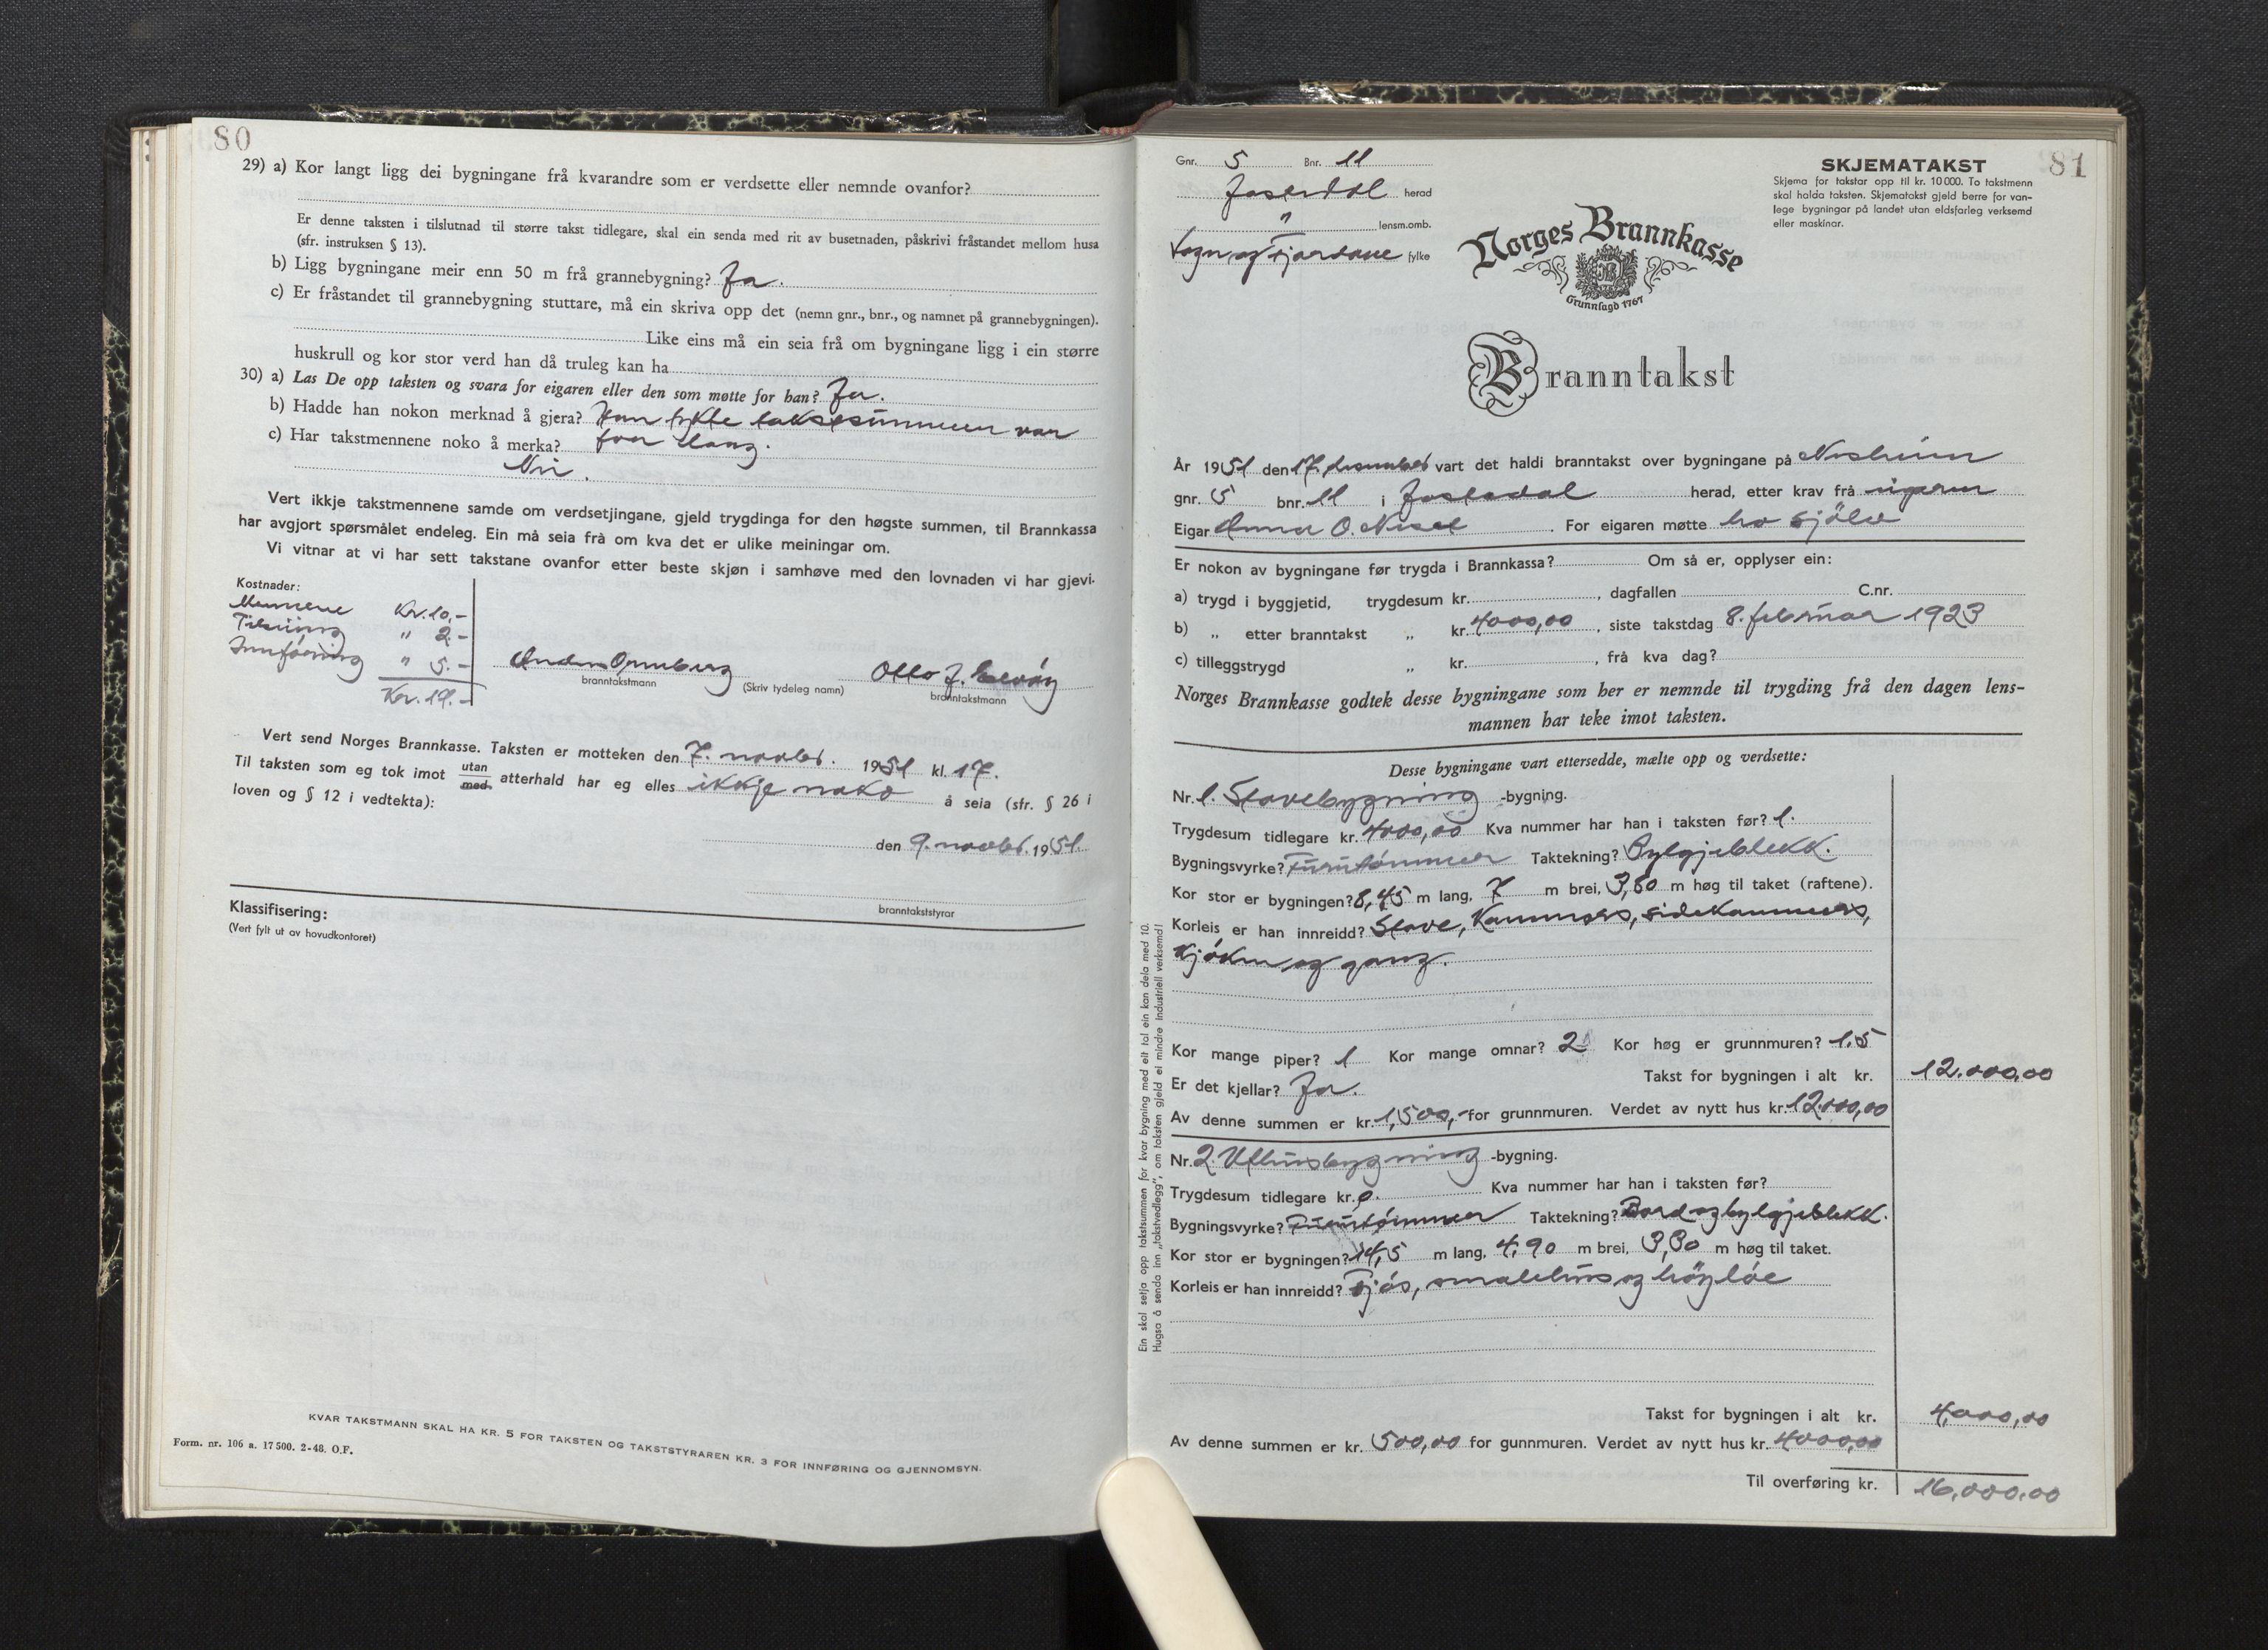 80
29) a) Kor langt ligg dei bygningane frå kvarandre som er verdsette eller nemnde ovanfor?
Er denne taksten i tilslutnad til større takst tidlegare, skal ein senda med rit av busetnaden, påskrivi fråstandet mellom husa
(sfr. instruksen § 13).
b) Ligg bygningane meir enn 50 m frå grannebygning? Ja.
c) Er fråstandet til grannebygning stuttare, må ein skriva opp det (nemn gnr., bnr., og namnet på grannebygningen).
Like eins må ein seia frå om bygningane ligg i ein større
huskrull og kor stor verd han då truleg kan ha
30) a) Las De opp taksten og svara for eigaren eller den som møtte for han? Ja.
b) Hadde han nokon merknad å gjera? Han tykte takstsummen var
c) Har takstmennene noko å merka? for
Nei.
Vert ikkje takstmennene samde om verdsetjingane, gjeld trygdinga for den høgste summen, til Brannkassa
har avgjort spørsmålet endeleg. Ein må seia frå om kva det er ulike meiningar om.
Vi vitnar at vi har sett takstane ovanfor etter beste skjøn i samhøve med den lovnaden vi har gjevi.
Kostnader:
Mennene Kr. 10,-
" 2.-
Innføring " 5.-
Kr. 17.-
Otto J.
branntakstmann (Skriv tydeleg namn) branntakstmann
Vert send Norges Brannkasse. Taksten er motteken den 7. novbr. 1951 kl. 17.
Til taksten som eg tok imot utan med atterhald har eg elles ikkje noko å seia (sfr. § 26 i
loven og § 12 i vedtekta):
den 9. novbr. 1951.
branntakststyrar
Klassifisering:
(Vert fylt ut av hovudkontoret)
KVAR TAKSTMANN SKAL HA KR. 5 FOR TAKSTEN OG TAKSTSTYRAREN KR. 3 FOR INNFØRING OG GJENNOMSYN.
Form. nr. 106 a. 17500. 2-48. O.F.
Gnr. 5 Bnr. 11
Jostedal herad
" lensm.omb.
Sogn og Fjordane fylke
SKJEMATAKST
81
Skjema for takstar opp til kr. 10000. To takstmenn
skal halda taksten. Skjematakst gjeld berre for van-
lege bygningar på landet utan eldsfarleg verksemd
eller maskinar.
Norges Brannkasse
Grunnlagd 1767
Branntakst
År 1951 den 17. vart det haldi branntakst over bygningane på Nesheim
gnr. 5 bnr. 11 i Jostedal herad, etter krav frå eigaren
Eigar Anna O. Nesel. For eigaren møtte ho sjølv
Er nokon av bygningane før trygda i Brannkassa? Om så er, opplyser ein:
a) trygd i byggjetid, trygdesum kr. , dagfallen C.nr.
b) „ etter branntakst „ kr. 4000,00 , siste takstdag 8. februar 1923
c) tilleggstrygd „ kr. , frå kva dag?
Norges Brannkasse godtek desse bygningane som her er nemnde til trygding frå den dagen lens-
mannen har teke imot taksten.
Desse bygningane vart ettersedde, mælte opp og verdsette:
Nr. 1. Stovebygning -bygning.
Trygdesum tidlegare kr. 4000,00 Kva nummer har han i taksten før? 1.
Bygningsvyrke? Furutømmer Taktekning? Bylgjeblekk.
Kor stor er bygningen? 8,45 m lang, 7 m brei, 3,80 m høg til taket (raftene).
Korleis er han innreidd? Stove, Kammers, sidekammers,
kjøken og gang.
Kor mange piper? 1 Kor mange omnar? 2 Kor høg er grunnmuren? 1.5
Er det kjellar? Ja. Takst for bygningen i alt kr. 12.000,00
Av denne summen er kr. 1,500,- for grunnmuren. Verdet av nytt hus kr. 12000,00
Nr. 2 Uthusbygning -bygning.
Trygdesum tidlegare kr. 0. Kva nummer har han i taksten før?
Bygningsvyrke? Furutømmer Taktekning? Bord og bylgjeblekk.
Kor stor er bygningen? 14,5 m lang, 4,90 m brei, 3,30 m høg til taket.
Korleis er han innreidd? Fjøs, smalehus og høyløe
Takst for bygningen i alt kr. 4,000,00
Av denne summen er kr. 500,00 for gunnmuren. Verdet av nytt hus kr. 4000,00
Til overføring kr. 16,000,00
Ein skal setja opp takstsummen for kvar bygning med eit tal ein kan dela med 10.
Hugsa å senda inn „takstvedlegg", om taksten gjeld ei mindre industriell verksemd!